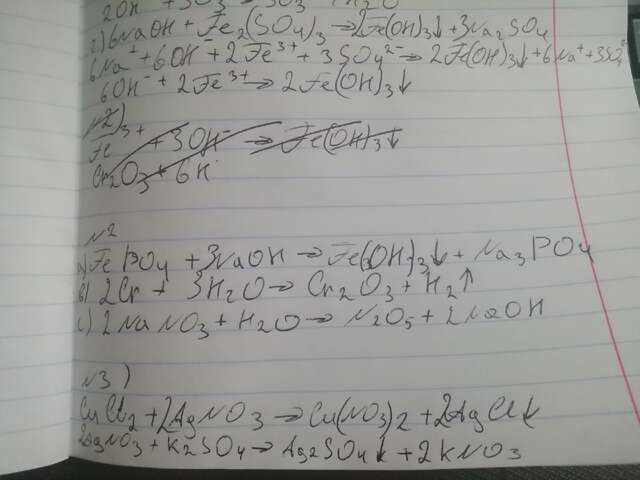 2OH⁻ + SO₃
г) 6NaOH + Fe₂(SO₄)₃ → 2Fe(OH)₃↓ + 3Na₂SO₄
6Na⁺ + 6OH⁻ + 2Fe³⁺ + 3SO₄²⁻ → 2Fe(OH)₃↓ + 6Na⁺ + 3SO₄²⁻
6OH⁻ + 2Fe³⁺ → 2Fe(OH)₃↓
№2)
Fe³⁺ + 3OH⁻ → Fe(OH)₃↓
Cr₂O₃ + 6H
№2
FePO₄ + 3NaOH → Fe(OH)₃↓ + Na₃PO₄
в) 2Cr + 3H₂O → Cr₂O₃ + H₂↑
с) 2NaNO₃ + H₂O → N₂O₅ + 2NaOH
№3)
CuCl₂ + 2AgNO₃ → Cu(NO₃)₂ + 2AgCl↓
2AgNO₃ + K₂SO₄ → Ag₂SO₄↓ + 2KNO₃